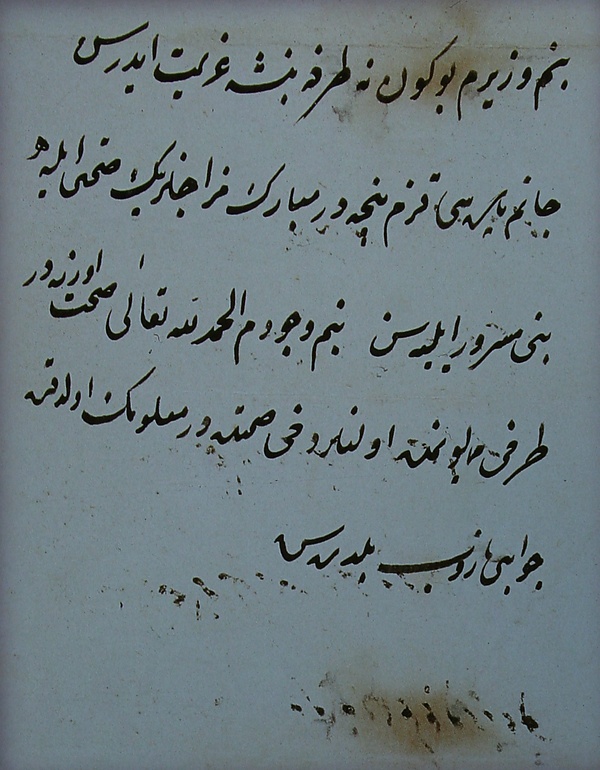 بنم وزیرم بوکون نه طرفه بنشه عزیمت ایدرسن
جانم پاره سی قزم نیجه در مبارک مزاجلرینک صحتی ایله
بنی مسرور ایلیه سن بنم وجودم الحمد لله تعالی صحت اوزره در
طرفی همایونمده اولنلر دخی صحتده در معلومک اولدقده
جوابی یازوب بلدیرسن